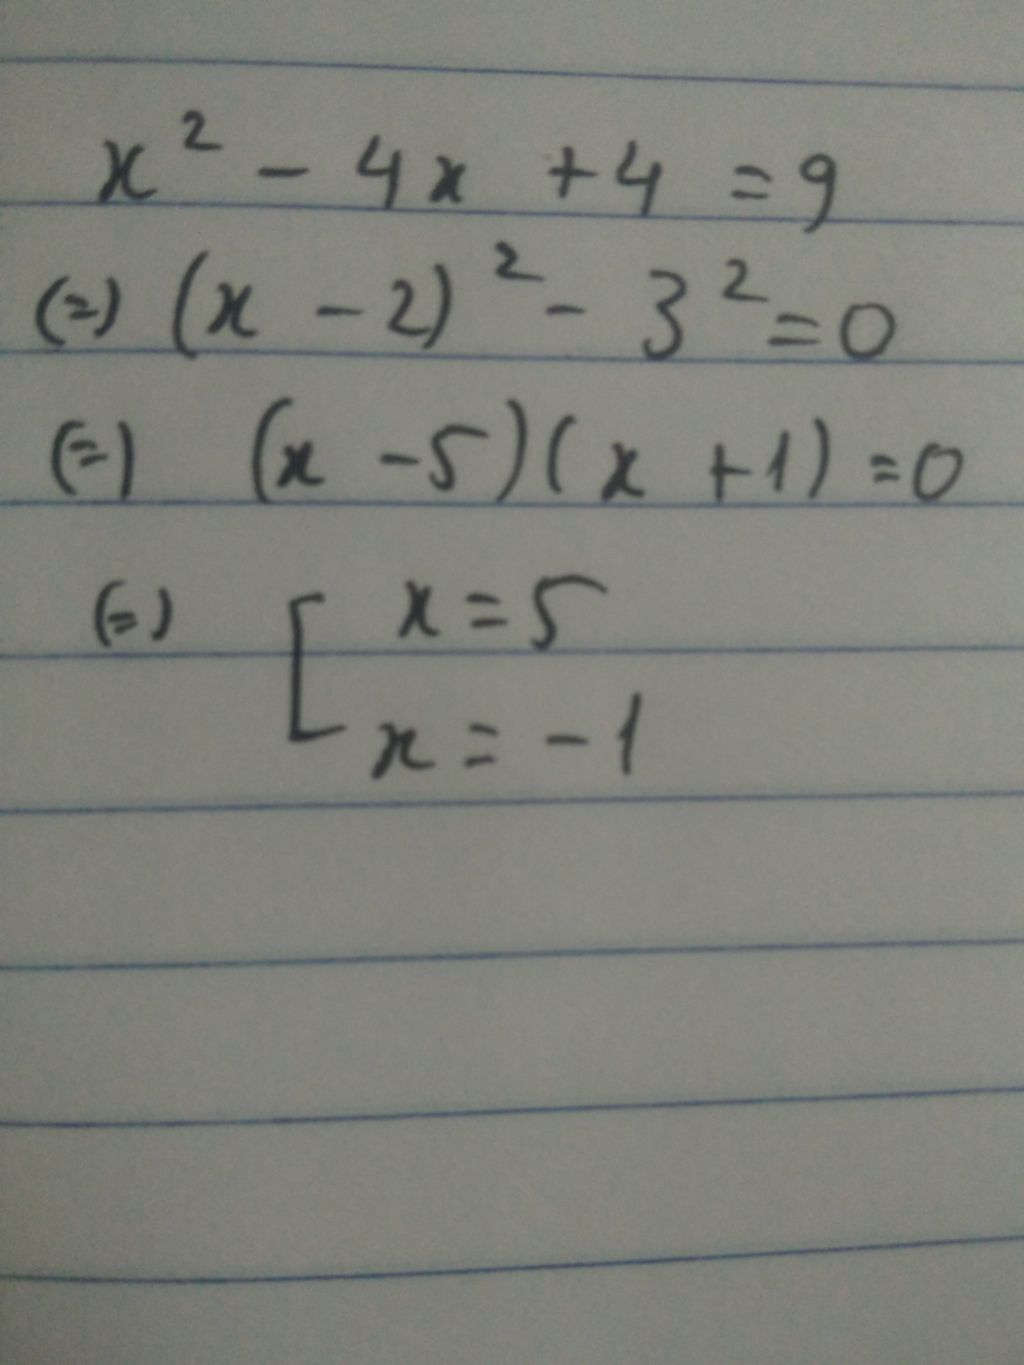 x² - 4x + 4 = 9
(=) (x - 2)² - 3² = 0
(=) (x - 5)(x + 1) = 0
(=) [ x = 5
x = -1